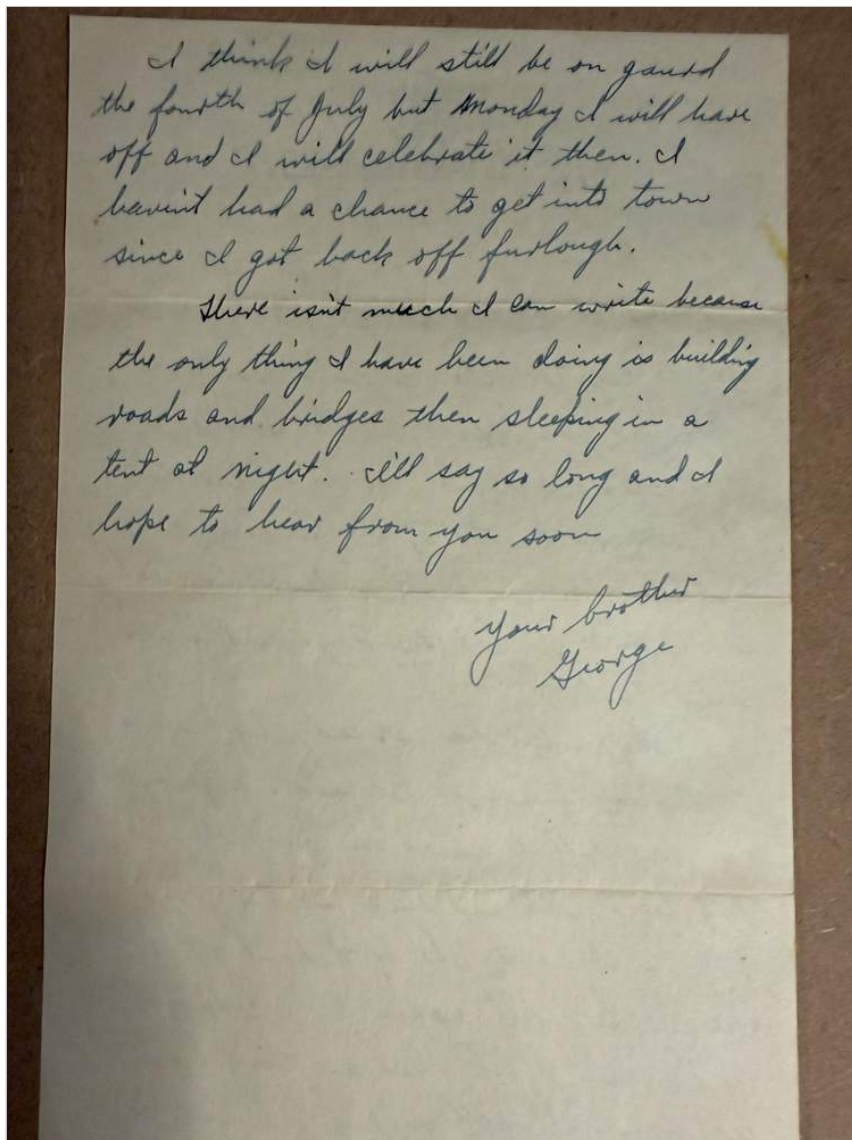 I think I will still be on gaurd
the fourth of July but Monday I will have
off and I will celebrate it then. I
havin't had a chance to get into town
since I got back off furlough.
There isn't much I can write because
the only thing I have been doing is building
roads and bridges then sleeping in a
tent at night. I'll say so long and I
hope to hear from you soon
Your brother
George